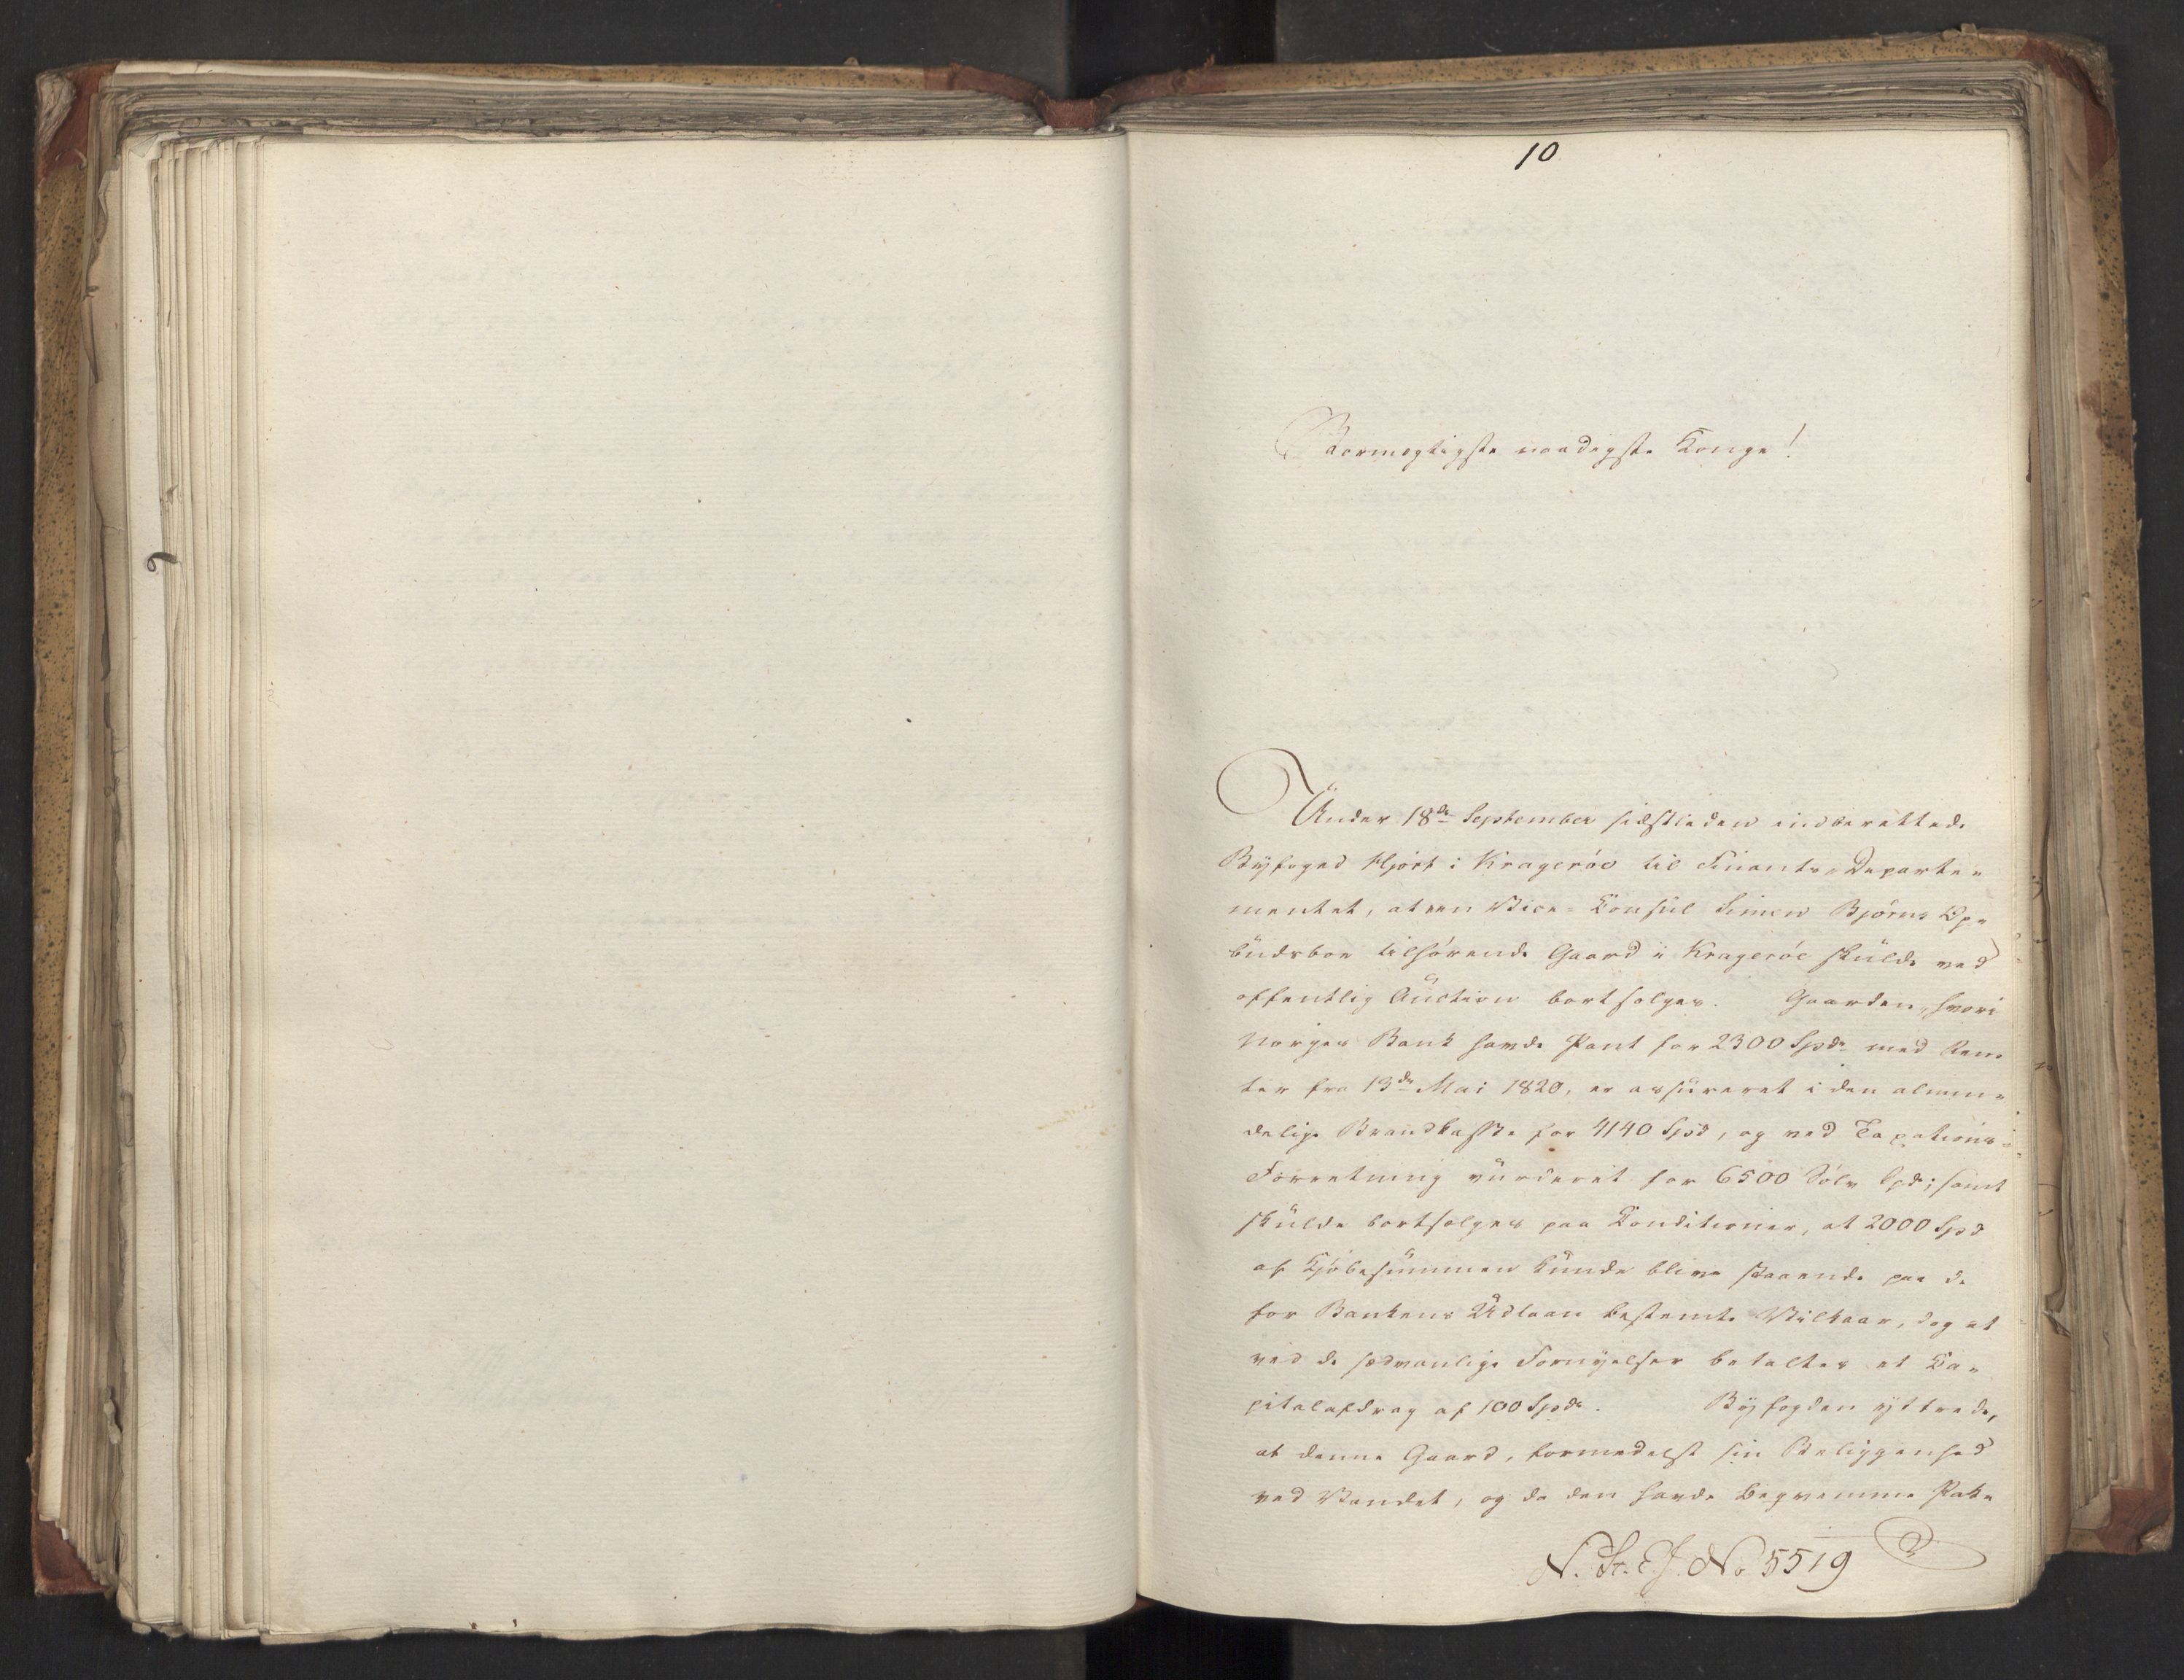 10
Stormægtigste naadigste Konge!
Under 18de September sidstleden indberettede
Byfoged Hjort i Kragerøe til Finants-Departe-
mentet, at en Vice-Consul Simen Bjørns Op-
budsboe tilhørende Gaard i Kragerøe skulde ved
offentlig Auction bortsælges. Gaarden, hvori
Norges Bank havde Pant for 2300 Spd. med Ren-
ter fra 13de Mai 1820, er assureret i den almin-
delige Brandkasse for 4140 Spd, og ved Taxations-
Forretning vurderet for 6500 Sølv Spd; samt
skulde bortsælges paa Conditioner, at 2000 Spd
af Kjøbesummen kunde blive staaende paa de
for Bankens Udlaan bestemte Vilkaar, dog at
ved de sædvanlige Fornyelser betaltes et Ca-
pitalafdrag af 100 Spd. Byfogden yttrede,
at denne Gaard, formedelst sin Beliggenhed
ved Vandet, og da den havde beqvemme Pak-
N. St. E. J. No 5519
9